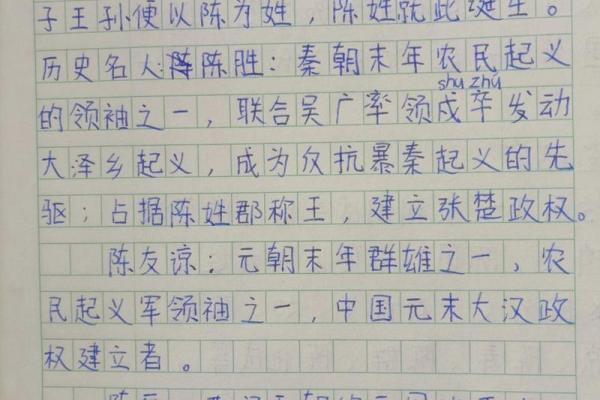 子王孙便以陈为姓，陈姓就此诞生。
历史名人：陈胜：秦朝末年农民起义
shù zhú
的领袖之一，联合吴广率领戍卒发动
大泽乡起义，成为反抗暴秦起义的先
驱；占据陈姓郡称王，建立张楚政权。
陈友谅：元朝末年群雄之一、农
民起义军领袖之一，中国元末大汉政
权建立者。